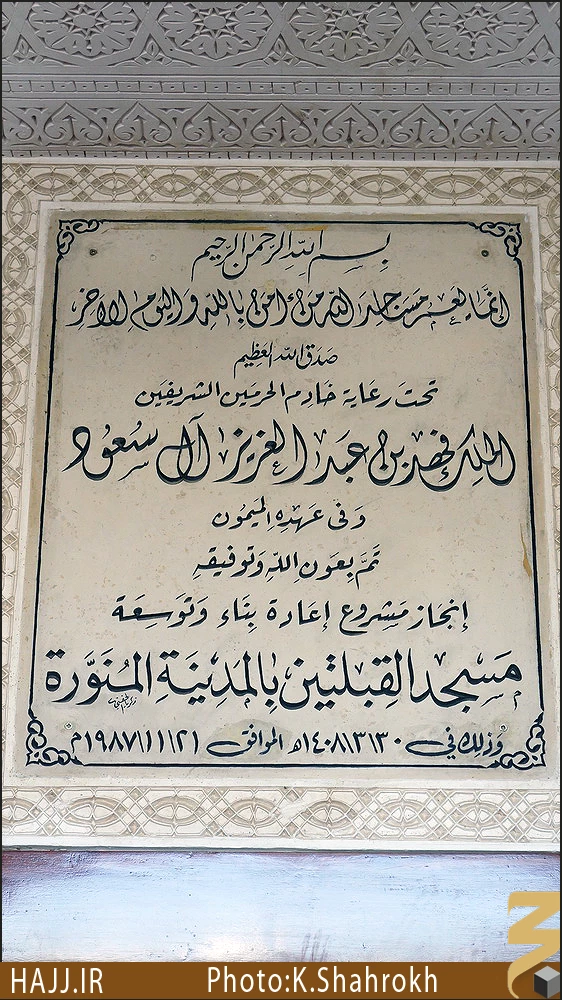 بسم الله الرحمن الرحيم
إنما يعمر مساجد الله من ءامن بالله واليوم الآخر
صدق الله العظيم
تحت رعاية خادم الحرمين الشريفين
الملك فهد بن عبد العزيز آل سعود
وفي عهده الميمون
تم بعون الله وتوفيقه
إنجاز مشروع إعادة بناء وتوسعة
مسجد القبلتين بالمدينة المنورة
وذلك في ١٤٠٨/٣/٣٠هـ الموافق ١٩٨٧/١١/٢١م
HAJJ.IR Photo:K.Shahrokh